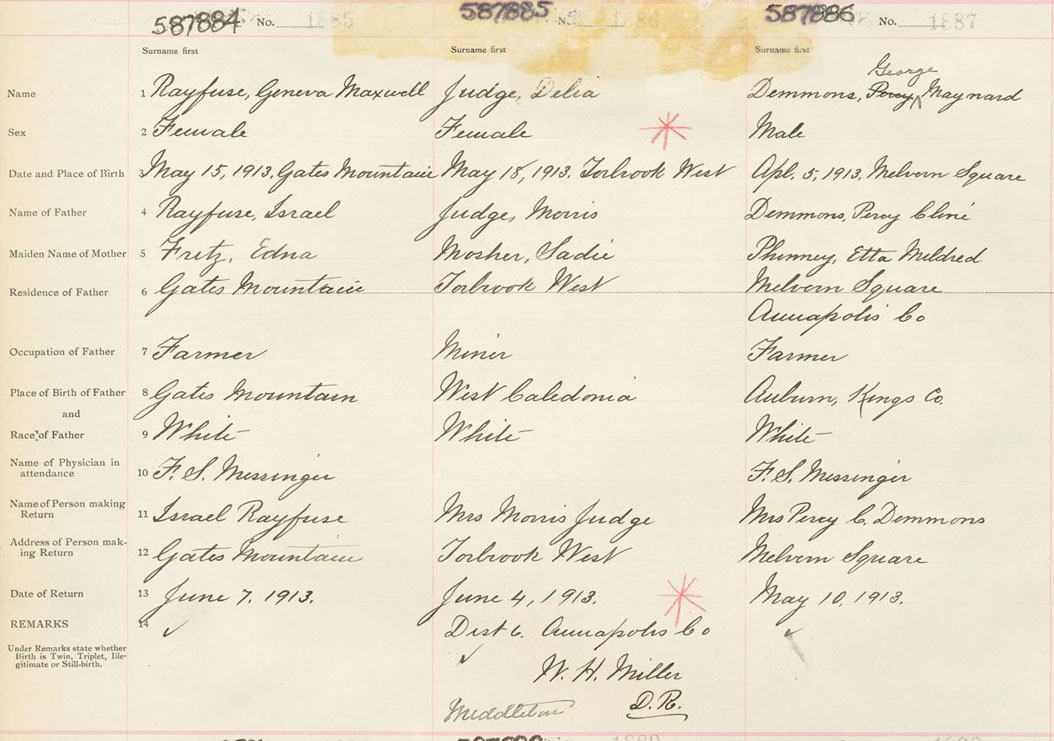 587884 No. 1885 587885 No. 1886 587886 No. 1887
Surname first Surname first Surname first
George
Name 1 Rayfuse, Geneva Maxwell Judge, Delia Demmons, Percy ^ Maynard
Sex 2 Female Female Male
Date and Place of Birth 3 May 15, 1913, Gates Mountain May 18, 1913. Torbrook West Apl. 5, 1913, Melvern Square
Name of Father 4 Rayfuse, Israel Judge, Morris Demmons, Percy Cline
Maiden Name of Mother 5 Fritz, Edna Mosher, Sadie Phinney, Etta Mildred
Residence of Father 6 Gates Mountain Torbrook West Melvern Square
Annapolis Co
Occupation of Father 7 Farmer Miner Farmer
Place of Birth of Father 8 Gates Mountain West Caledonia Auburn, Kings Co.
and
Race of Father 9 White White White
Name of Physician in
attendance 10 F. S. Messinger F. S. Messinger
Name of Person making
Return 11 Israel Rayfuse Mrs Morris Judge Mrs Percy C. Demmons
Address of Person mak-
ing Return 12 Gates Mountain Torbrook West Melvern Square
Date of Return 13 June 7. 1913. June 4, 1913. May 10, 1913.
REMARKS 14 ✓ Dist 6. Annapolis Co ✓
Under Remarks state whether
Birth is Twin, Triplet, Ille-
gitimate or Still-birth.
✓
W. H. Miller
Middleton D. R.